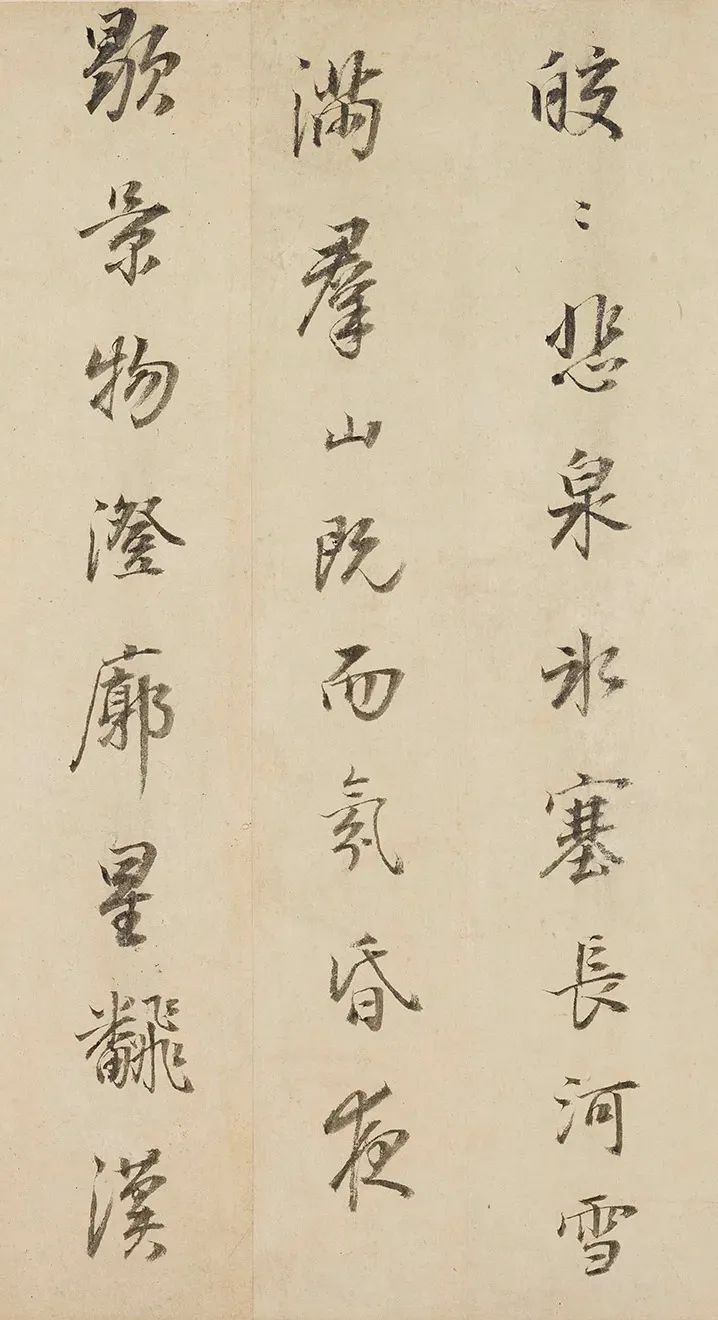 皎〻悲泉氷塞長河雪
滿羣山既而氛昏夜
歇景物澄廓星飜漢